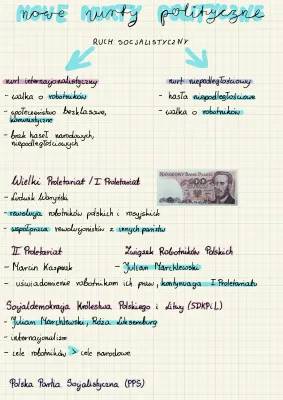 nowe nurty polityczne
RUCH SOCJALISTYCZNY
nurt internacjonalistyczny
- walka o robotników
- społeczeństwo bezklasowe,
komunistyczne
- brak haseł narodowych,
niepodległościowych
nurt niepodległościowy
- hasła niepodległościowe
- walka o robotników
Wielki Proletariat / I Proletariat
- Ludwik Waryński
- rewolucja robotników polskich i rosyjskich
- współpraca rewolucjonistów z innych państw
NARODOWY BANK POLSKI
II Proletariat
- Marcin Kasprzak
Związek Robotników Polskich
- Julian Marchlewski
- uświadomienie robotnikom ich praw, kontynuacja I Proletariatu
Socjaldemokracja Królestwa Polskiego i Litwy (SDKPiL)
- Julian Marchlewski, Róża Luksemburg
- internacjonalizm
- cele robotników > cele narodowe
Polska Partia Socjalistyczna (PPS)